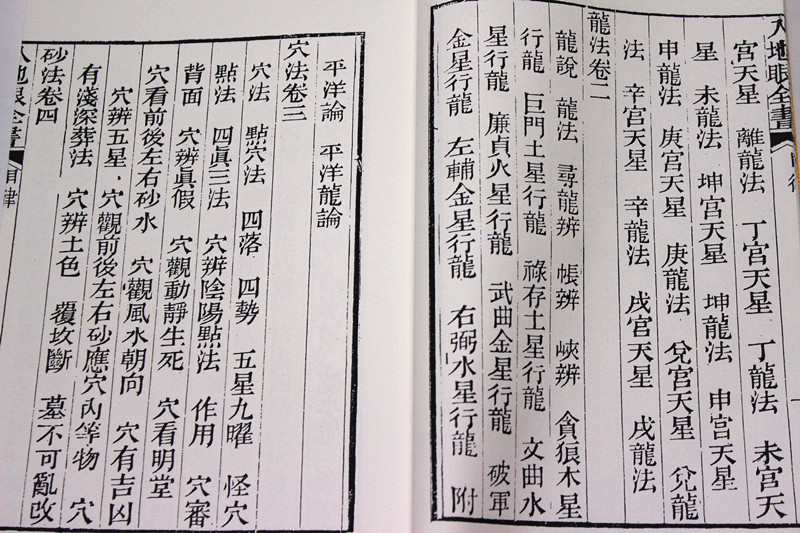 入地眼全書
宮天星 離龍法 丁宮天星 丁龍法 未宮天
星 未龍法 坤宮天星 坤龍法 申宮天星
申龍法 庚宮天星 庚龍法 兌宮天星 兌龍
法 辛宮天星 辛龍法 戌宮天星 戌龍法
龍法卷二
龍說 龍法 尋龍辨 帳辨 峽辨 貪狼木星
行龍 巨門土星行龍 祿存土星行龍 文曲水
星行龍 廉貞火星行龍 武曲金星行龍 破軍
金星行龍 左輔金星行龍 右弼水星行龍 附
平洋論 平洋龍論
穴法卷三
穴法 點穴法 四落 四勢 五星九曜 怪穴
點法 四眞三法 穴辨陰陽點法 作用 穴審
背面 穴辨眞假 穴觀動靜生死 穴看明堂
穴看前後左右砂水 穴觀風水朝向 穴有吉凶
穴辨五星 穴觀前後左右砂應穴內等物 穴
有淺深葬法 穴辨土色 覆坟斷 墓不可亂改
砂法卷四
入地眼全書